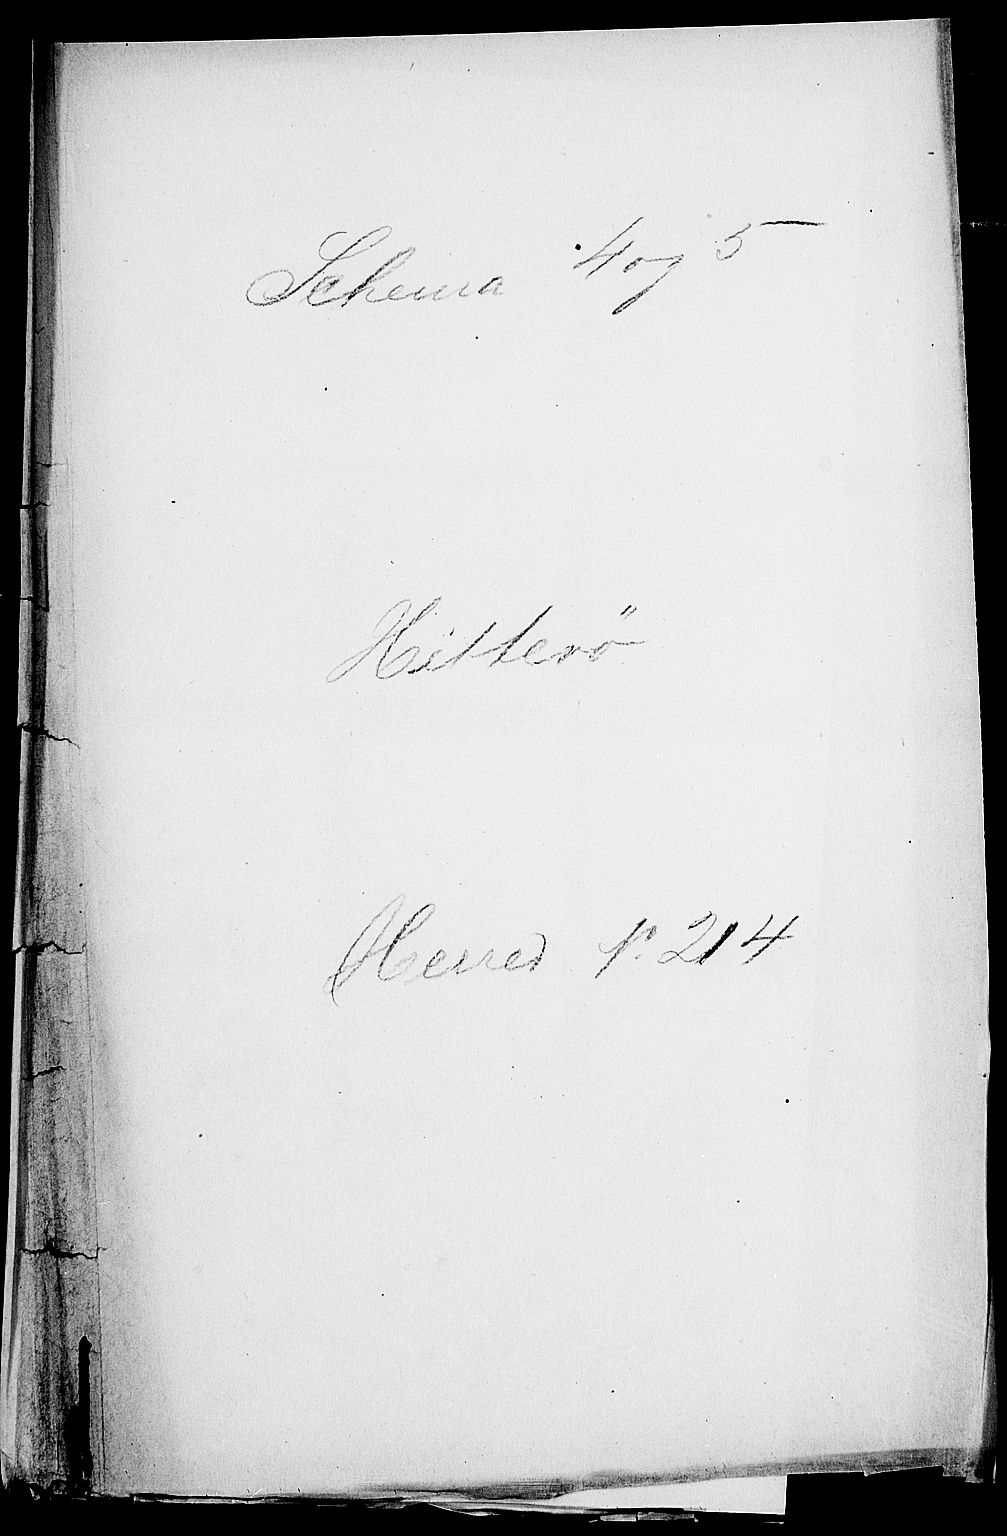 Schema 4 og 5
Hitterö
Herred No. 214